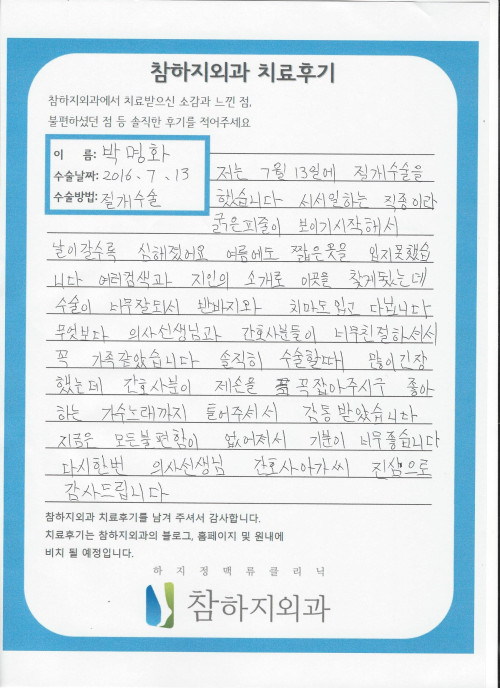 참하지외과 치료후기
참하지외과에서 치료받으신 소감과 느낀 점,
불편하셨던 점 등 솔직한 후기를 적어주세요
이 름: 박명화
수술날짜: 2016. 7. 13
수술방법: 절개수술
저는 7월 13일에 절개수술을
했습니다 서서일하는 직종이라
굵은핏줄이 보이기시작해서
날이갈수록 심해졌어요 여름에도 짧은옷을 입지못했습
니다 여러검색과 지인의 소개로 이곳을 찾게됬는데
수술이 너무잘되서 반바지와 치마도입고 다닙니다
무엇보다 의사선생님과 간호사분들이 너무친절하셔서
꼭 가족같았습니다 솔직히 수술할때 많이긴장
했는데 간호사분이 제손을 꼭잡아주시구 좋아
하는 가수노래까지 틀어주셔서 감동받았습니다
지금은 모든불편함이 없어져서 기분이 너무좋습니다
다시한번 의사선생님 간호사아가씨 진심으로
감사드립니다
참하지외과 치료후기를 남겨 주셔서 감사합니다.
치료후기는 참하지외과의 블로그, 홈페이지 및 원내에
비치 될 예정입니다.
하지정맥류클리닉
참하지외과